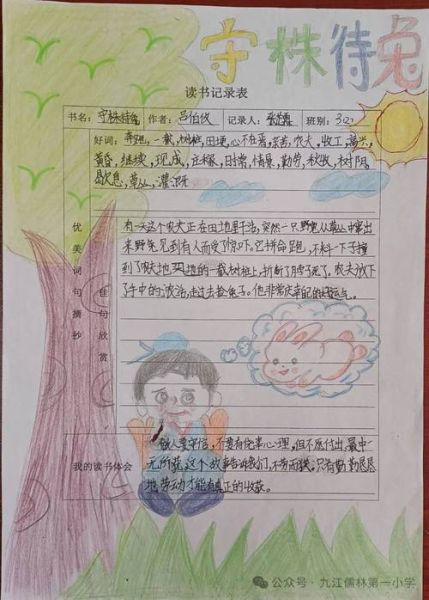 守株待兔
读书记录表
书名：守株待兔 作者：吕伯攸 记录人： 班别：3(2)
好词：奔跑，一截，树桩，田埂，心不在焉，农夫，收工，
黄昏，继续，现成，庄稼，日常，情景，勤劳，秋收，树阴，
歇息，草丛，灌溉
优美词句摘抄
佳句欣赏
有一天这个农夫正在田地里干活，突然一只野兔从草丛中窜出
来野兔见到有人而受了惊吓。它拼命跑，不料一下子撞
到了农夫地里的一截树桩上，折断了脖子死了。农夫放下
了手中的农活，走过去捡兔子。他非常庆幸自己的好运气。
我的读书体会
做人要守信，不要有侥幸心理，但不愿付出，最中一
无所获。这个故事告诉我们，不劳而获，只有勤勤恳恳
地劳动才能有真正的收获。
公众号·九江儒林第一小学